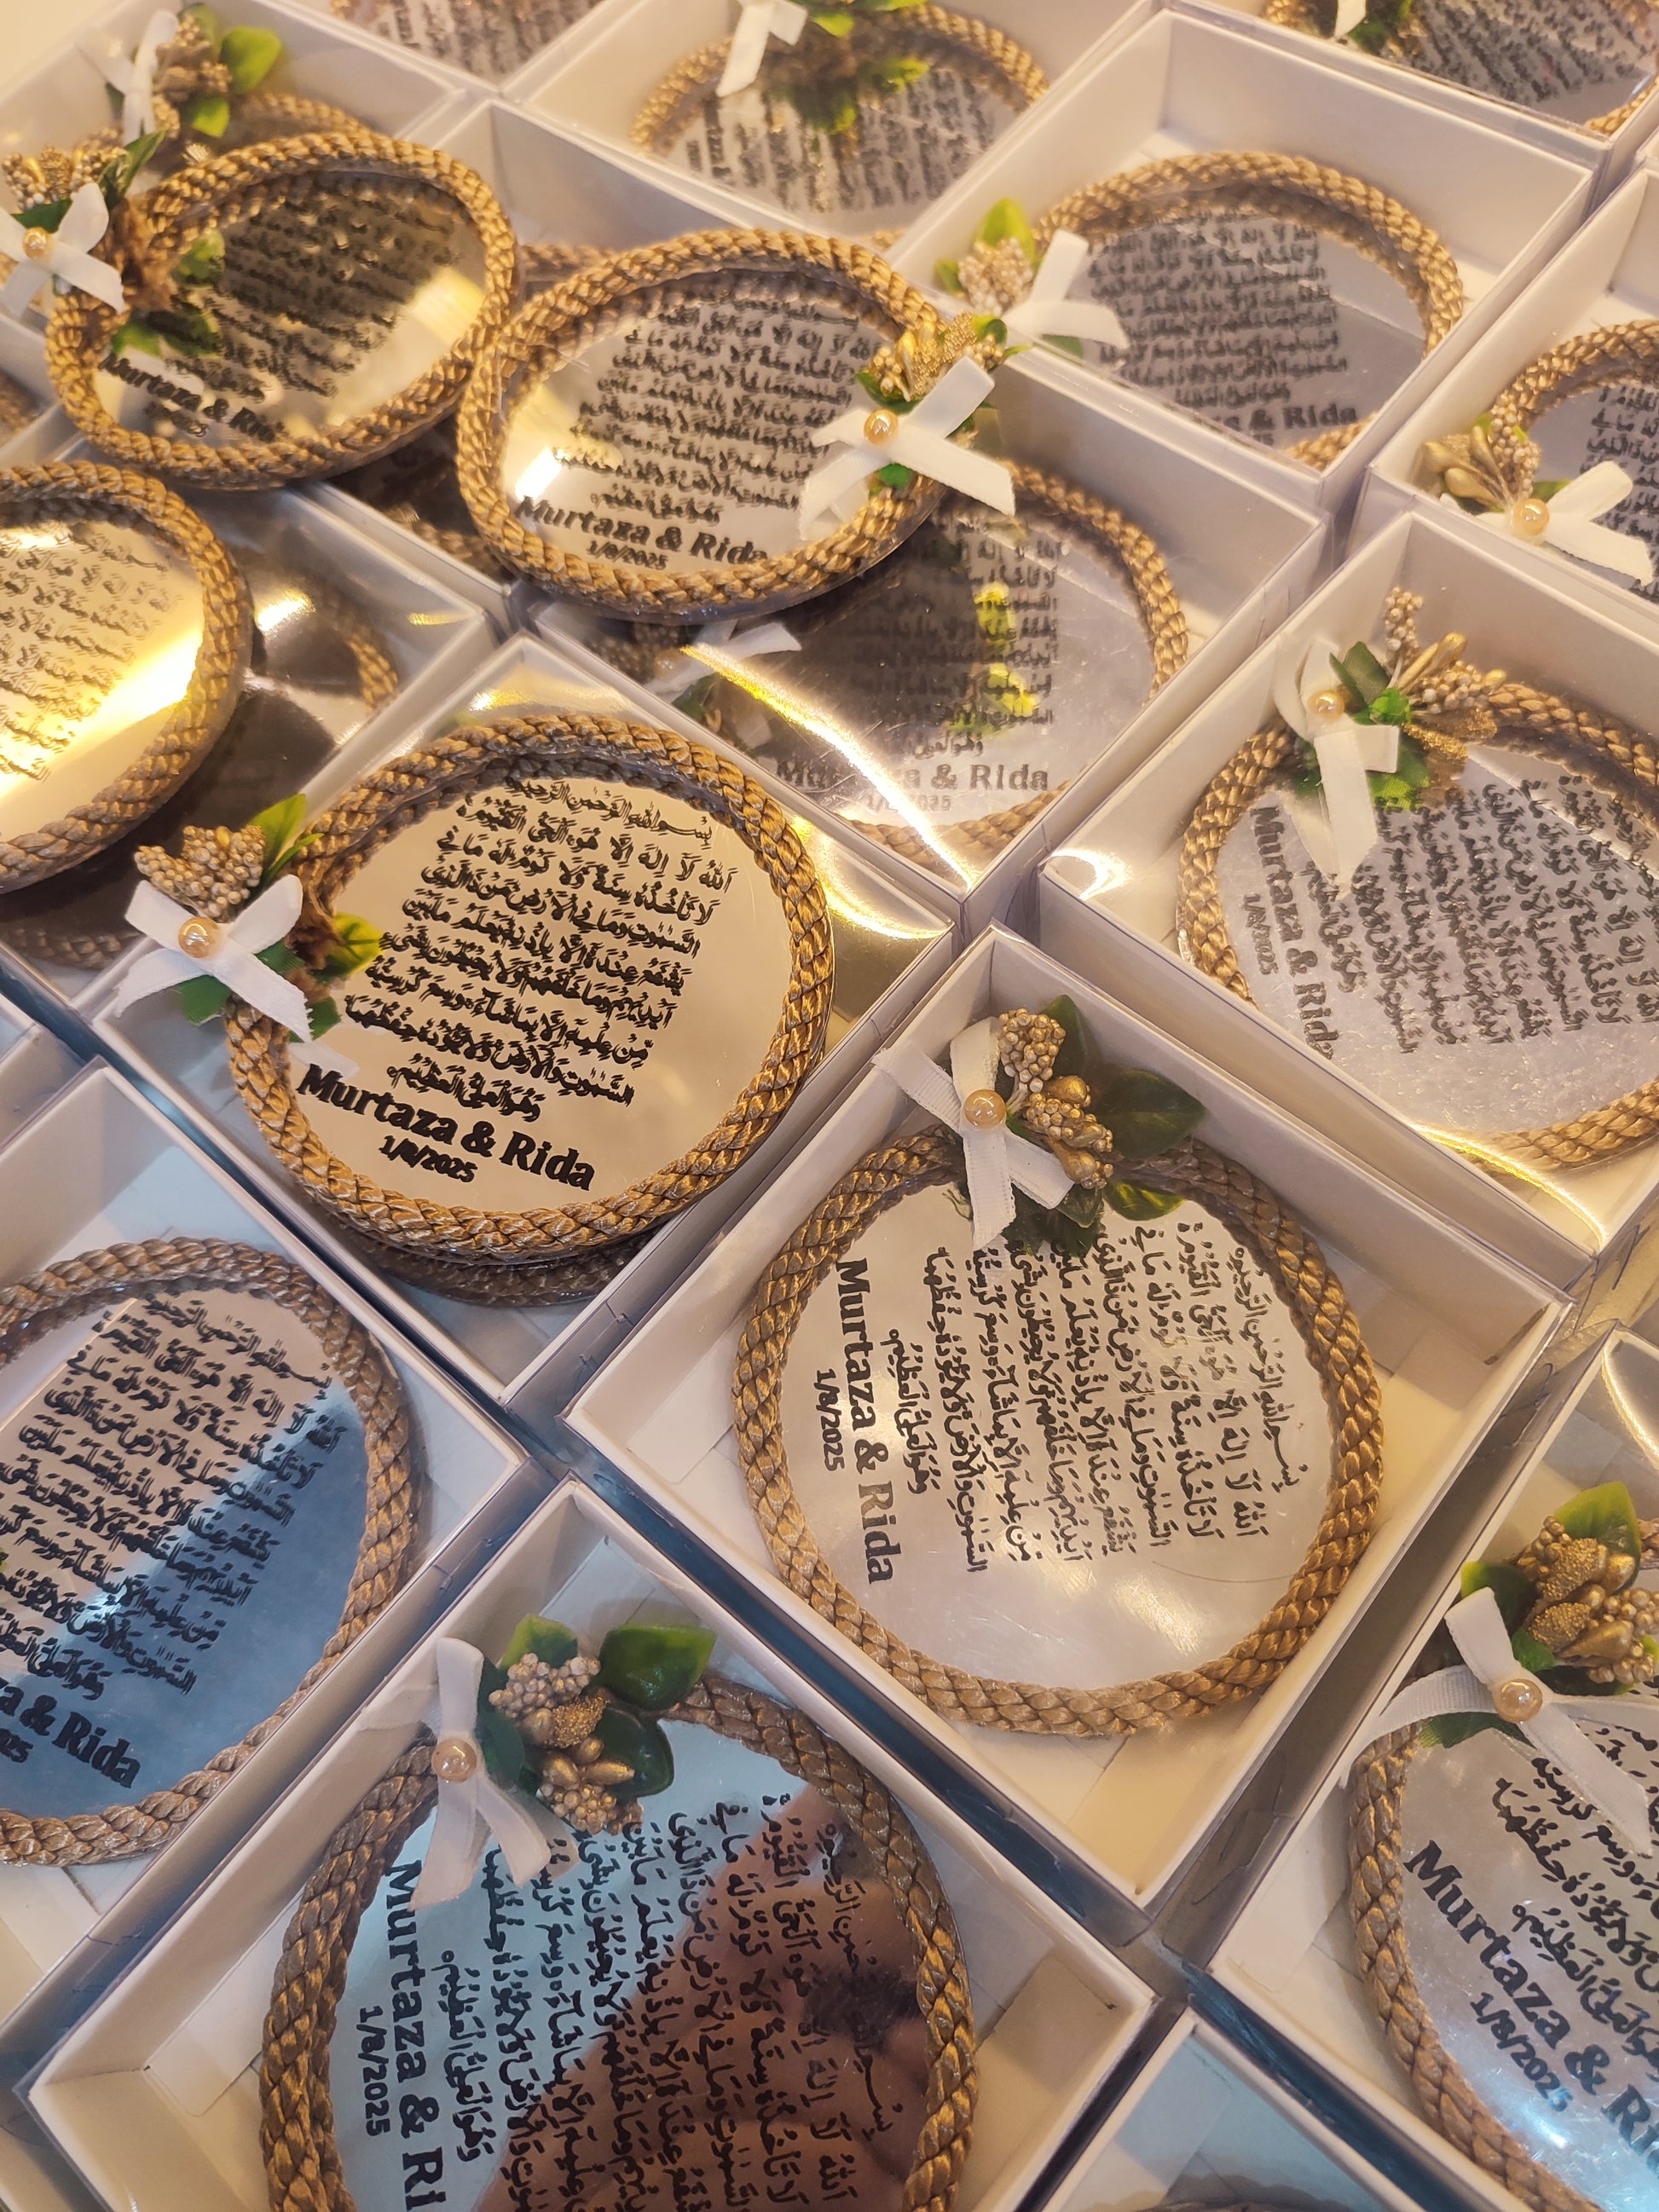 بِسْمِ اللهِ الرَّحْمٰنِ الرَّحِيْمِ
اَللهُ لَا اِلٰهَ اِلَّا هُوَ اَلْحَيُّ الْقَيُّوْمُ ە
لَا تَاْخُذُهٗ سِنَةٌ وَّلَا نَوْمٌ لَهٗ مَا فِي
السَّمٰوٰتِ وَمَا فِي الْاَرْضِ مَنْ ذَا الَّذِيْ
يَشْفَعُ عِنْدَهٗ اِلَّا بِاِذْنِهٖ يَعْلَمُ مَا بَيْنَ
اَيْدِيْهِمْ وَمَا خَلْفَهُمْ وَلَا يُحِيْطُوْنَ بِشَيْءٍ
مِّنْ عِلْمِهٖ اِلَّا بِمَا شَآءَ وَسِعَ كُرْسِيُّهُ
السَّمٰوٰتِ وَالْاَرْضَ وَلَا يَئُوْدُهٗ حِفْظُهُمَا
وَهُوَ الْعَلِيُّ الْعَظِيْمُ ە
Murtaza & Rida
1/8/2025